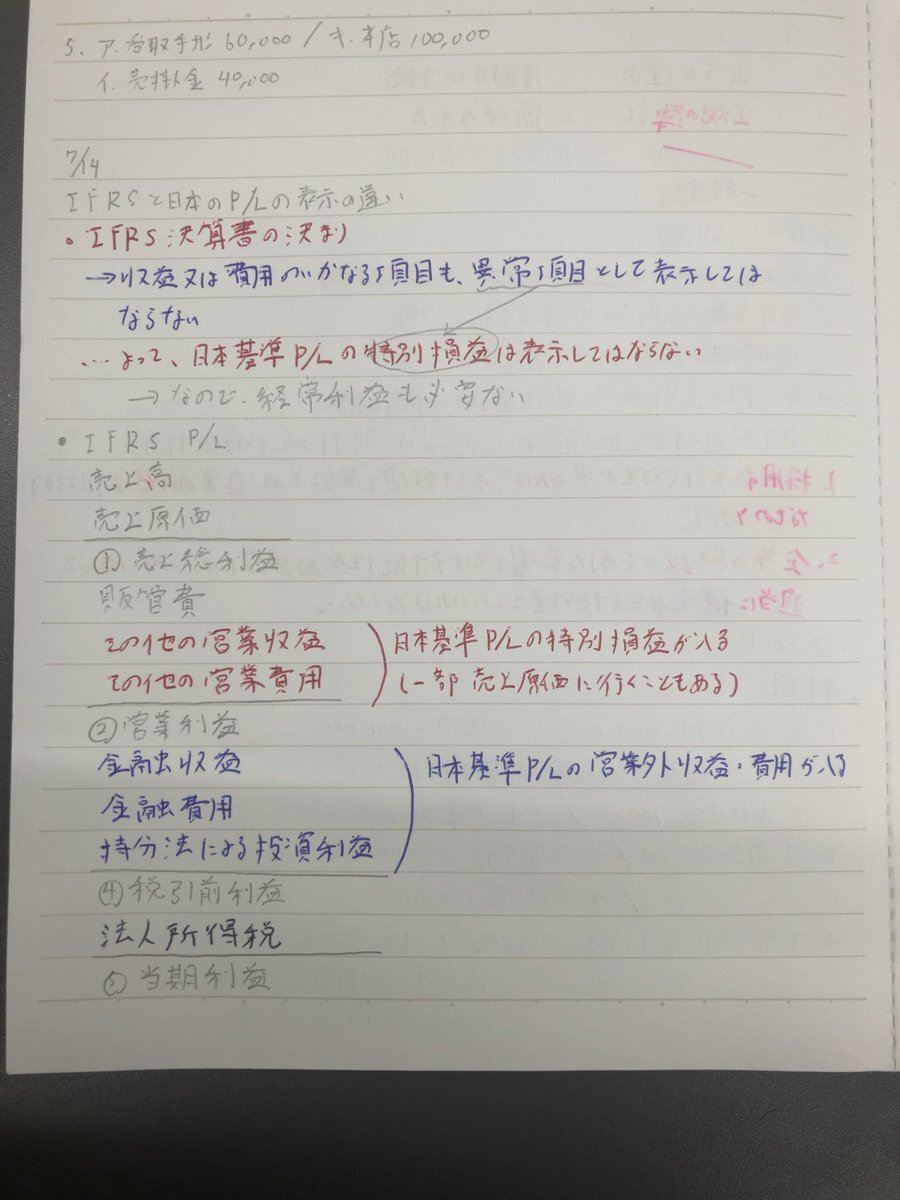 5、ア.受取手形 60,000 / キ.本店 100,000
イ.売掛金 40,000
7/14
IFRSと日本のP/Lの表示の違い
• IFRS決算書の決まり
→収益又は費用のいかなる項目も、異常項目として表示しては
ならない
…よって、日本基準P/Lの特別損益は表示してはならない
→なので、経常利益も必要ない
• IFRS P/L
売上高
売上原価
①売上総利益
販管費
その他の営業収益
その他の営業費用
日本基準P/Lの特別損益が入る
(一部売上原価に行くこともある)
②営業利益
金融収益
金融費用
持分法による投資利益
日本基準P/Lの営業外収益・費用が入る
④税引前利益
法人所得税
当期利益